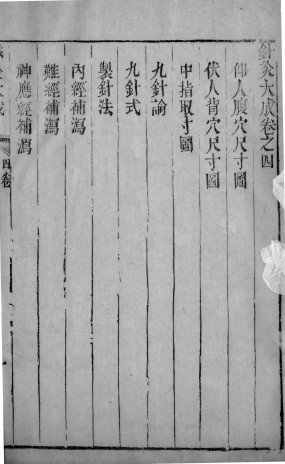 針灸大成卷之四
仰人腹穴尺寸圖
伏人背穴尺寸圖
中指取寸圖
九針論
九針式
製針法
內經補瀉
難經補瀉
神應經補瀉
四卷